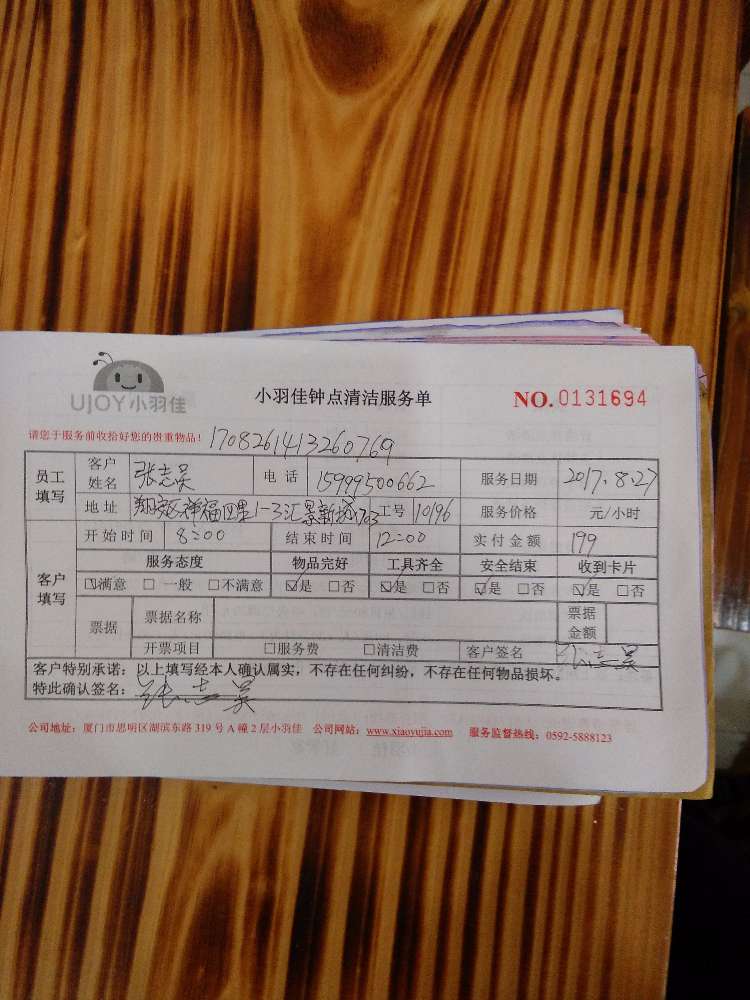 UJOY小羽佳
小羽佳钟点清洁服务单
NO.0131694
请您于服务前收拾好您的贵重物品! 1708261413260769
员工填写 客户姓名 张志昊 电话 15999500662 服务日期 2017.8.27
地址 翔安区祥福四里1-3汇景新城703 工号 10196 服务价格 元/小时
客户填写 开始时间 8:00 结束时间 12:00 实付金额 199
服务态度 物品完好 工具齐全 安全结束 收到卡片
☑满意 □一般 □不满意 ☑是 □否 ☑是 □否 ☑是 □否 ☑是 □否
票据 票据名称 票据金额
开票项目 □服务费 □清洁费 客户签名 张志昊
客户特别承诺:以上填写经本人确认属实,不存在任何纠纷,不存在任何物品损坏。
特此确认签名:张志昊
公司地址:厦门市思明区湖滨东路 319 号 A 幢 2 层小羽佳 公司网站:www.xiaoyujia.com 服务监督热线:0592-5888123